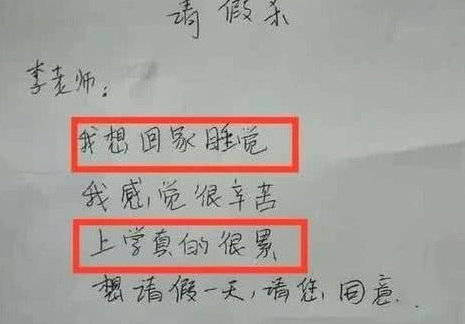 请假条
李老师:
我想回家睡觉
我感,觉很辛苦
上学真的很累
想请假一天,请您,同意..